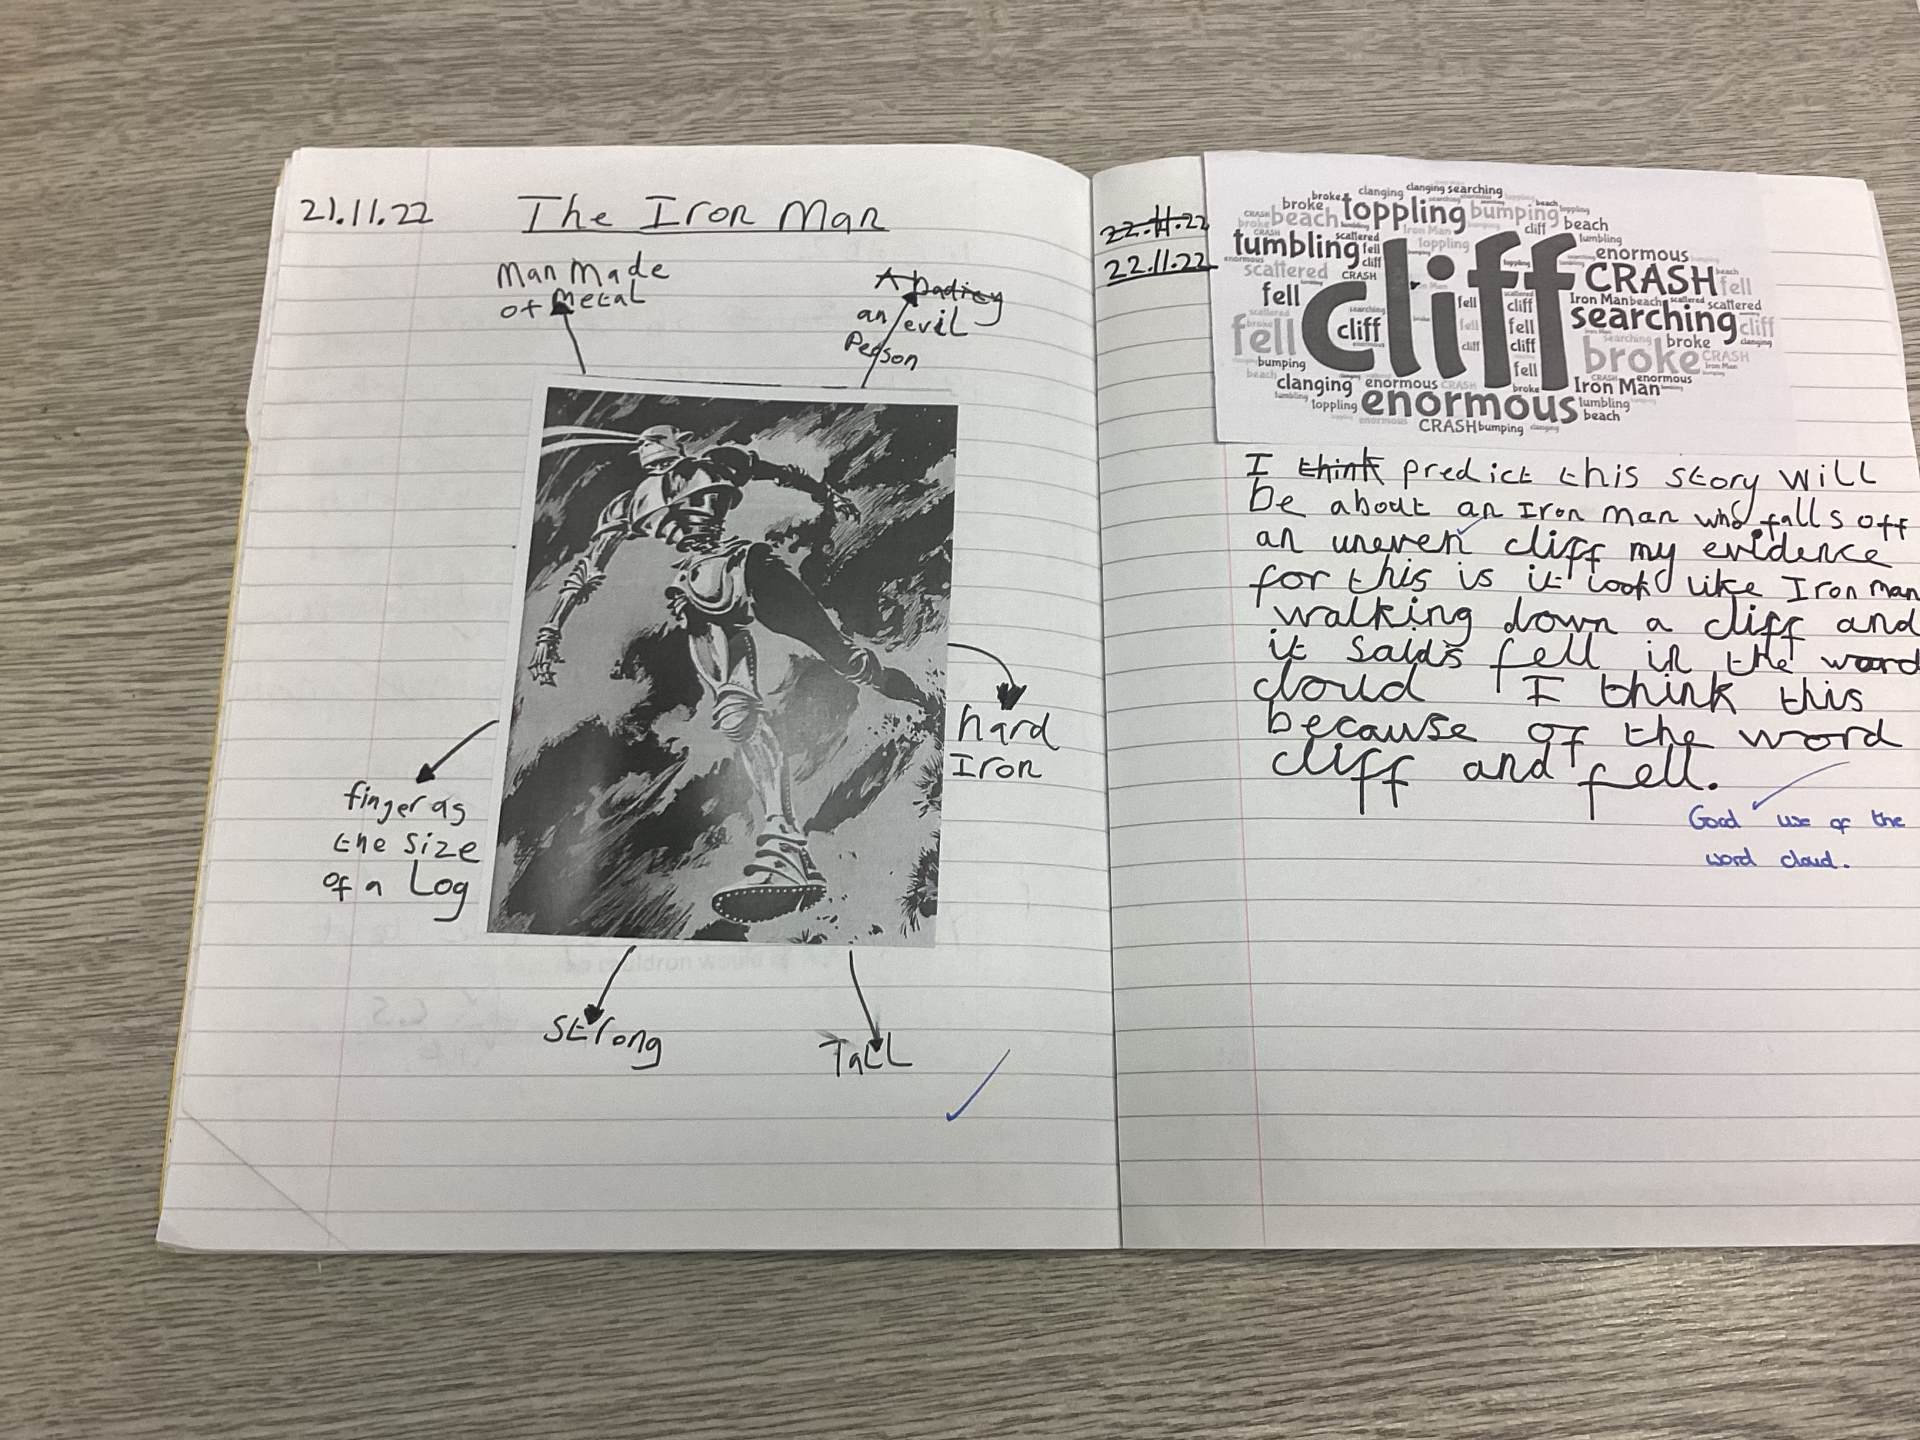 21.11.22 The Iron Man
Man Made
of Metal
an evil
Person
hard
Iron
finger as
the size
of a Log
Strong
Tall
22.11.22
22.11.22
clanging clanging searching
broke broke toppling bumping beach
beach cliff
tumbling scattered Iron Man toppling tumbling
fell cliff enormous
scattered CRASH CRASH fell
fell Iron Man beach scattered scattered
cliff
cliff fell cliff searching cliff
fell fell fell broke broke CRASH
bumping cliff cliff Iron Man
clanging enormous CRASH fell broke Iron Man enormous
toppling enormous tumbling
CRASH bumping beach
I think predict this story will
be about an Iron man who falls off
an uneven cliff my evidence
for this is it look like Iron man
walking down a cliff and
it saids fell in the word
cloud I think this
because of the word
cliff and fell.
Good use of the
word cloud.